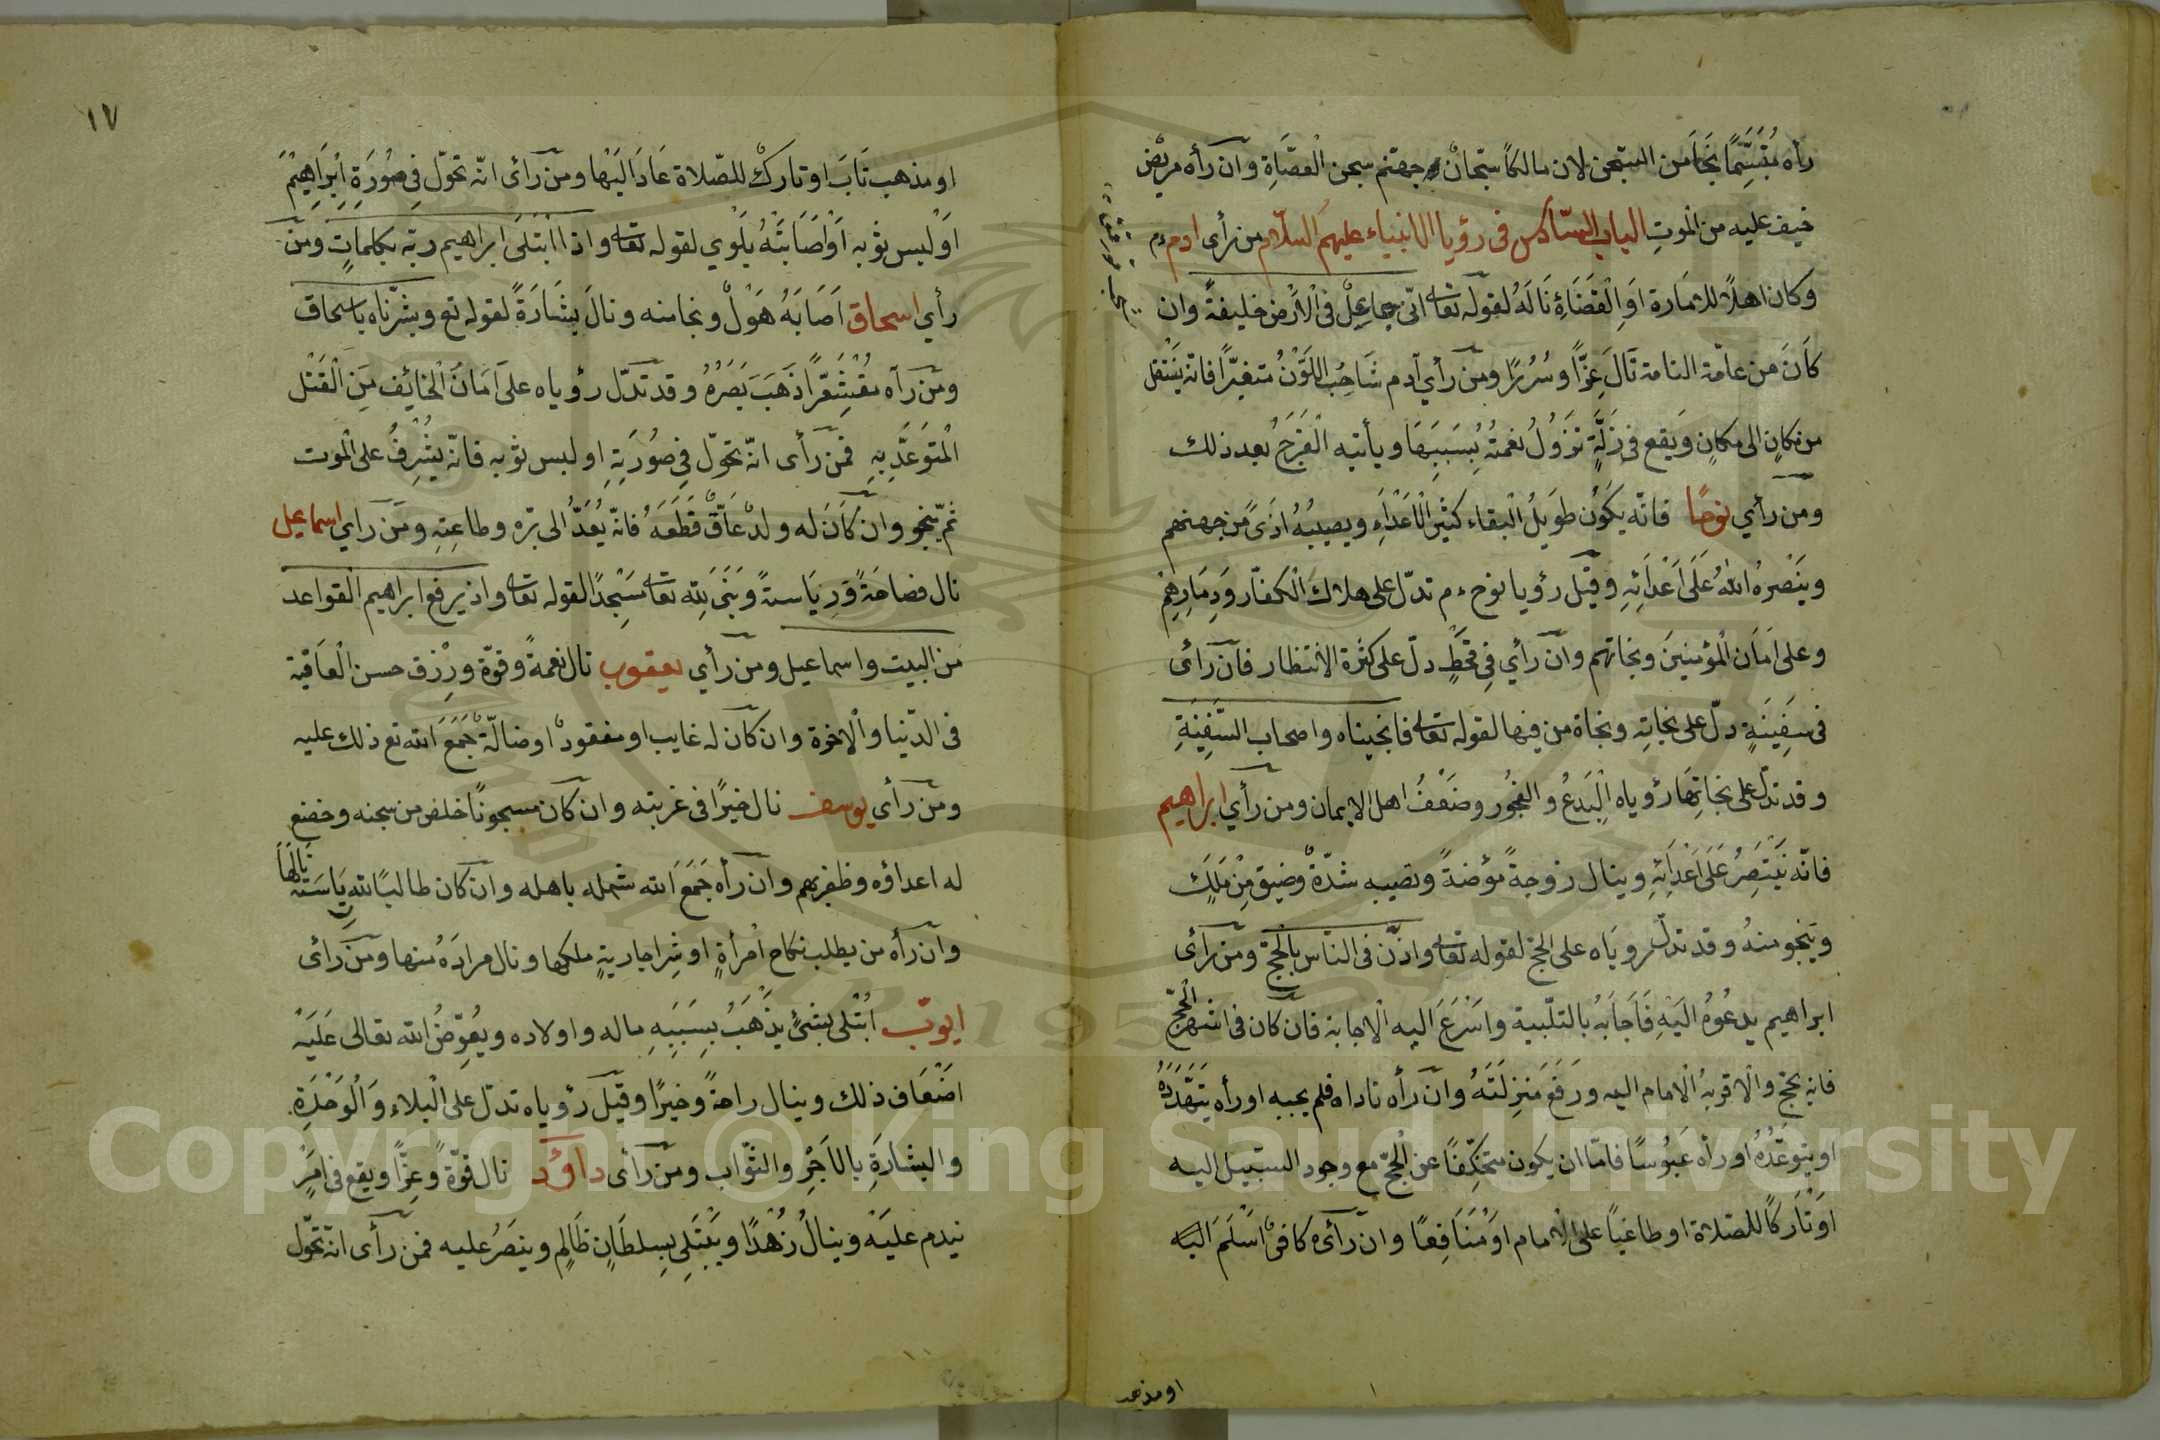 رأه مُتَبَسِّمًا نَجَا مَن السجن لان مالكًا سجّان جهنّم سجن الْعصَاةِ وآن رأه مريض
خيف عليه من الموتِ الباب السّادس فى رؤيا الانبياء عليهم السّلام من رأى ادم ءم
وكان اهلاً للامارة اوَ الْقضَاءِ نَالَهُ لقوله تعالى انّى جاعِلٌ فى الْأَرْضِ خليفةً وان
كَانَ من عامّة النامة نَالَ عِزًّا وسُرُرًا ومن رأي آدم شَاحِبُ اللَوْنُ متغيّرًا فانّه يَنْتقل
من مكانٍ الى مكانٍ وَيقع فى زلّةٍ تزَوُلُ نعْمتُهُ بِسَبَبِهَا ويأتيه الْفَرَجُ بعد ذلك
ومن رأي نوحًا فانّه يَكُون طوَيلُ الْبقاء كثيرَ الْاَعْدَاءِ ويصيبُهُ اذىً من جهتهم
ويَنْصْرهُ اللهُ عَلَى اَعْدَائِهِ وقيل رؤيا نوح ءم تدلّ على هلاك الْكفّار وَدِمَارِهِمْ
وعلى امَان الْمُؤمنينَ ونجاتهم وان رأي فِى قحَطٍ دلّ على كثرة الأنتظار فان رآئ
فى سَفِينَةٍ دلّ على نجاتِهِ ونجاة من فيها لقوله تعالى فانجيناه واصحاب السَّفِينَةِ
وقد تدلّ على نجاتِهَا رؤياه الْبَدعُ والفجُور وضَعْفُ اهل الايمان ومن رأي ابراهيم
فانّه يَنْتَصِرُ عَلَى اَعْدَائِهِ وينال زوجةً مؤمنةً وتصيبه شدّةٌ وضيق مِنْ مَلِكٍ
ويَنجو منهُ وقد تدلّ روياه على الحجّ لقوله تعالى واذّن فى النّاس بالْحَجّ ومن رآئى
ابراهيم يدعُوُهُ اليَهِ فَاَجَابَهُ بالتلّبية واسْرَعَ اليه الْاجابة فان كان فى اشهر الْحَجّ
فانه يحجّ والّا قربهُ الْامام اليه ورَفعَ مَنزِلَتَهُ وان رأه ناداه فلم يجبه او رأه يَتَهَدّدَهُ
او يتوعّدُهُ او رأه عَبُوسًا فامّا ان يكون متخلّفًا عن الْحَجّ مع وجود السّبيل اليه
اوَ تَارِكًا للصّلاة او طاغيًا على الْامام اوَ مُنَافِقًا وان رآئ كافرٌ اَسْلَمَ اليه
او مذهب
١٧
او مذهب تَابَ او تاركٌ للصّلاة عَادَ اليَهَا ومن رآئ انّه تحوّل فِى صُورَةِ اِبْرَاهِيْمَ
اَوْ لبس ثوبه اَوْ اَصَابَتْهُ بَلْوي لقوله تعالى واذا ابْتَلَى ابراهيم ربّه بكلماتٍ ومن
رأي اسحاق اَصَابَهُ هَوْلٌ ونجا منه ونالَ بِشَارَةً لقوله تع وبشّرناه باسحاق
ومن رآه مقْشَعّرًا ذَهَبَ بَصَرُهُ وقد تدّل رؤياه على آمان الْخائِف مِنَ الْقَتْل
الْمتوَعَّد بِهِ فمن رأى انّه تحوّل فِى صُورَتِةِ او لبس ثوبه فانّه يَشْرِفُ على الْموت
ثمّ ينجو وان كَانَ له ولدٌ عَاقٌّ قَطَعَهُ فانّه يُعَدُّ الى برّه وطاعِتِهِ ومَن راي اسماعيل
نال فصاحَةً وَرِيَاستةً وبَنَى لله تعالى مَسْجِدًا لقوله تعالى واذ يرفع ابراهيم القواعد
من البيت واسماعيل ومن رأي يعقوب نال نعمةً وقوّة ورْزق حسن الْعَاقبة
فى الدّنيا والْاخرة وان كَان له غايب او مفقودٌ او ضالّةٌ جَمَعَ الله تع ذلك عليه
ومن رأي يوسف نال خيرًا فى غربته وان كان مسجونًا خلص من سجنه وخضع
له اعداؤه وظفر بهم وان رأه جَمَعَ الله شمله باهله وان كان طالبًا للرِيَاسَة نَالَهَا
وان رأه من يطلب نكاح امْرأةٍ او شِرا جاريةٍ ملكها ونال مرادَهُ منها ومن رآئ
ايوب ابُتْلى بشئٍ يذْهَبُ بِسَبَبِهِ ماله واولاده ويُعوِّضُ الله تعالى عَليَهْ
اضَعْاف ذلك وينال راحةً وخيرًا وقيل رؤياه تدلّ على الْبلاء وَالْوَحْدَةِ
والبشارَةِ بالاَجْرِ والثّواب ومن رآئ داوُد نال قوّةً وَعِزًّا ويقع فى امَرٍ
نيدم عليَهْ وينالُ زهْدًا ويَبْتَلِى بِسلطَانٍ ظَالِمٍ وينصَرُ عليه فمن رآئ انّه تحّول